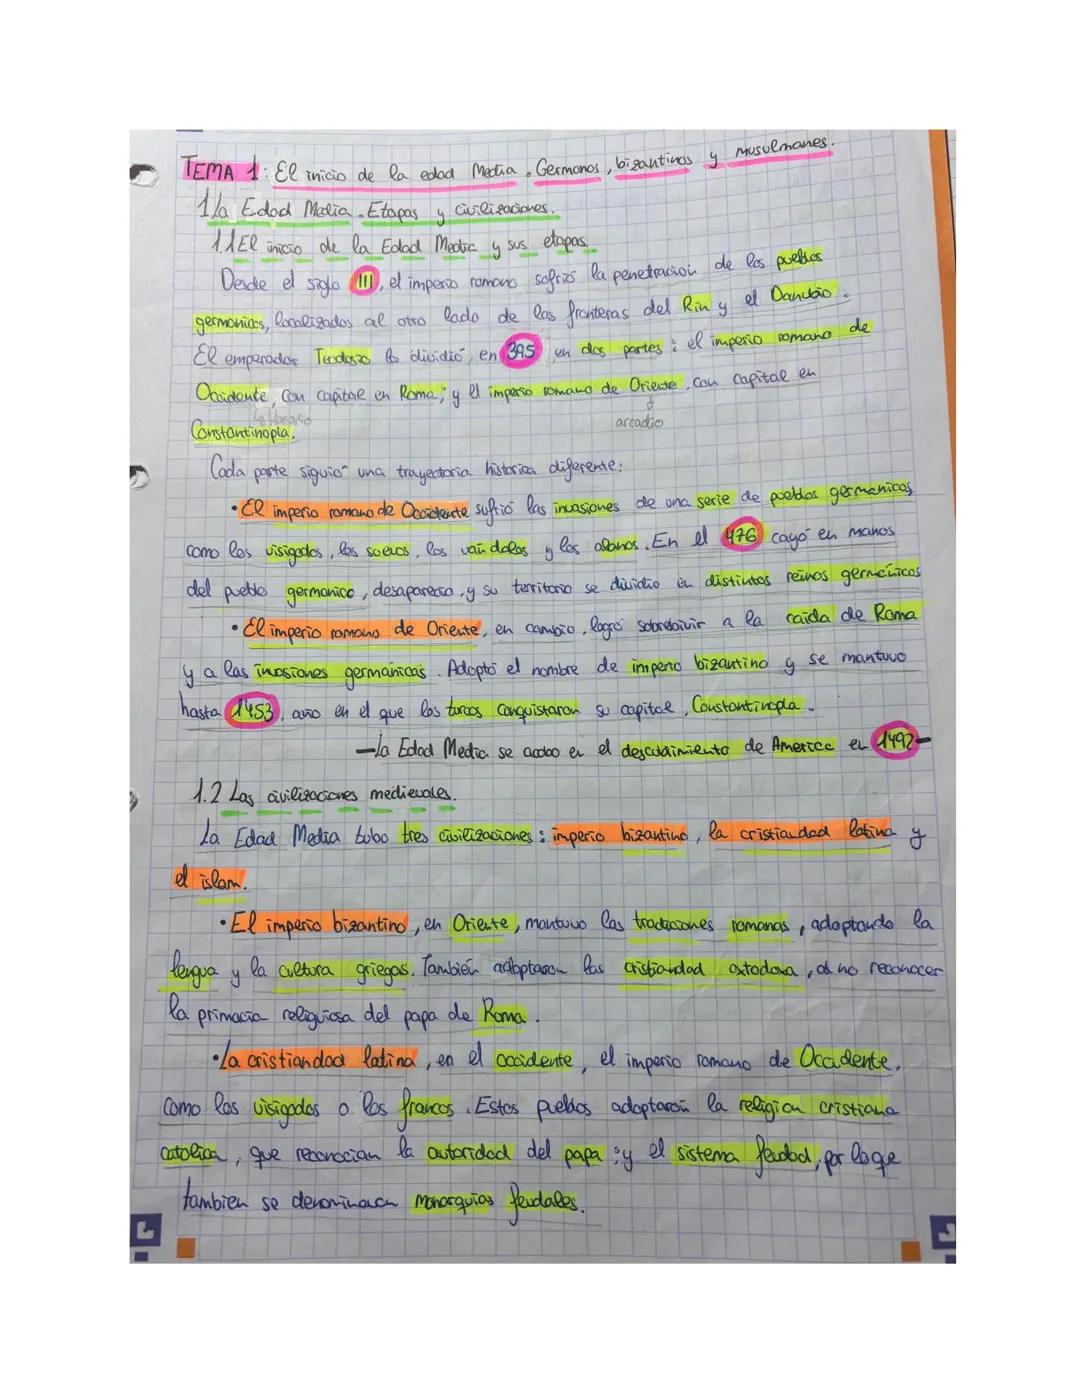 TEMA 1: El inicio de la edad Media. Germanos, bizantinos y musulmanes.
1. La Edad Media. Etapas y civilizaciones.
1.1 El inicio de la Edad Media y sus etapas.
Desde el siglo III, el imperio romano sufrió la penetración de los pueblos
germanicos, localizados al otro lado de las fronteras del Rin y el Danubio.
El emperador Teodosio lo dividió, en 395 en dos partes: el imperio romano de
Occidente, con capital en Roma; y el imperio romano de Oriente, con capital en
Honorio arcadio
Constantinopla.
Cada parte siguió una trayectoria historica diferente:
• El imperio romano de Occidente sufrió las invasiones de una serie de pueblos germanicos,
como los visigodos, los suevos, los vándalos y los alanos. En el 476 cayó en manos
del pueblo germanico, desaparecio, y su territorio se dividio en distintos reinos germánicos
• El imperio romano de Oriente, en cambio, logró sobrebivir a la caída de Roma
y a las invasiones germánicas. Adoptó el nombre de imperio bizantino y se mantuvo
hasta 1453, año en el que los turcos conquistaron su capital, Constantinopla.
—La Edad Media se acabo en el descubrimiento de America en 1492—
1.2 Las civilizaciones medievales.
La Edad Media tubo tres civilizaciones: imperio bizantino, la cristiandad latina y
el islam.
• El imperio bizantino, en Oriente, mantuvo las tradiciones romanas, adoptando la
lengua y la cultura griegas. También adoptaron las cristiandad ortodoxa, al no reconocer
la primacia religiosa del papa de Roma.
• La cristiandad latina, en el occidente, el imperio romano de Occidente,
como los visigodos o los francos. Estos pueblos adoptaron la religion cristiana
catolica, que reconocian la autoridad del papa; y el sistema feudal, por lo que
tambien se denominaron monarquias feudales.